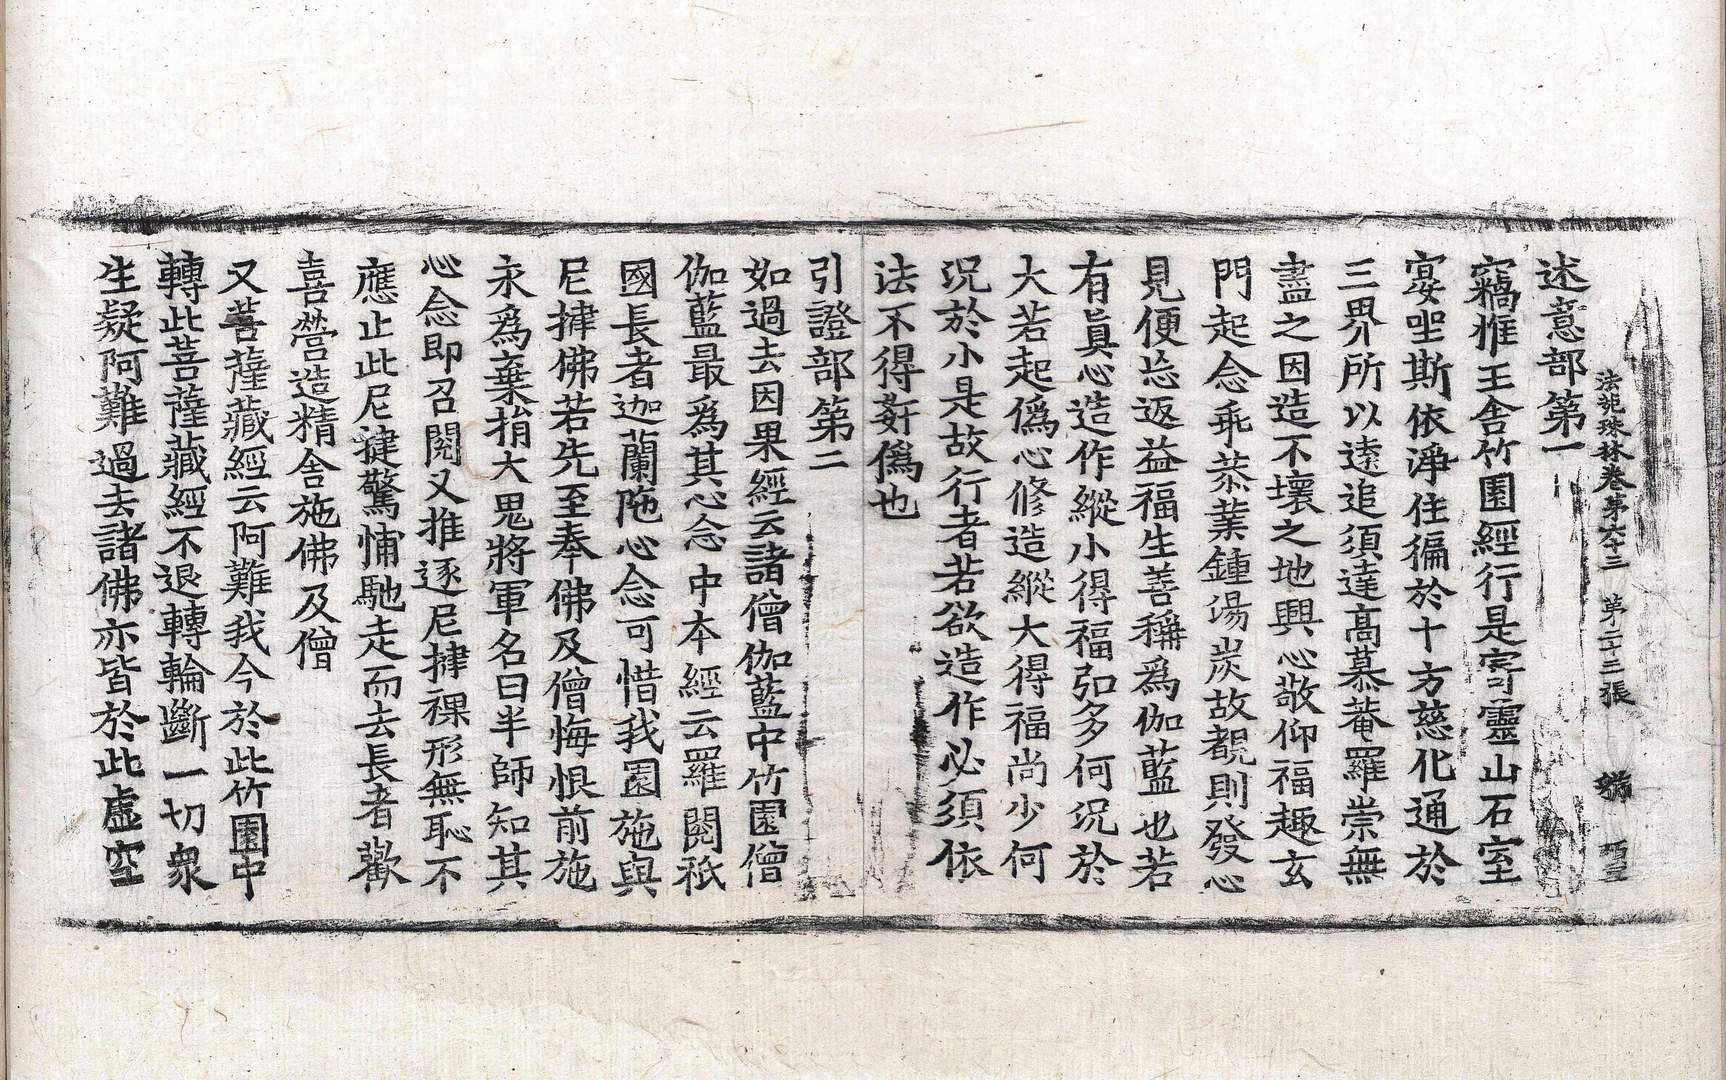 法苑珠林卷第六十三 第二十三張
述意部第一
竊惟王舍竹園經行是寄靈山石室
宴坐斯依淨住徧於十方慈化通於
三界所以遠追須達高慕菴羅崇無
盡之因造不壞之地興心敬仰福趣玄
門起念乖恭業鍾湯炭故覩則發心
見便忘返益福生善稱爲伽藍也若
有眞心造作縱小得福弘多何況於
大若起僞心修造縱大得福尚少何
況於小是故行者若欲造作必須依
法不得姧僞也
引證部第二
如過去因果經云諸僧伽藍中竹園僧
伽藍最爲其心念中本經云羅閱祇
國長者迦蘭陁心念可惜我園施與
尼揵佛若先至奉佛及僧悔恨前施
永爲棄捐大鬼將軍名曰半師知其
心念即召閱叉推逐尼揵裸形無恥不
應止此尼揵驚怖馳走而去長者歡
喜營造精舍施佛及僧
又菩薩藏經云阿難我今於此竹園中
轉此菩薩藏經不退轉輪斷一切衆
生疑阿難過去諸佛亦皆於此虛空